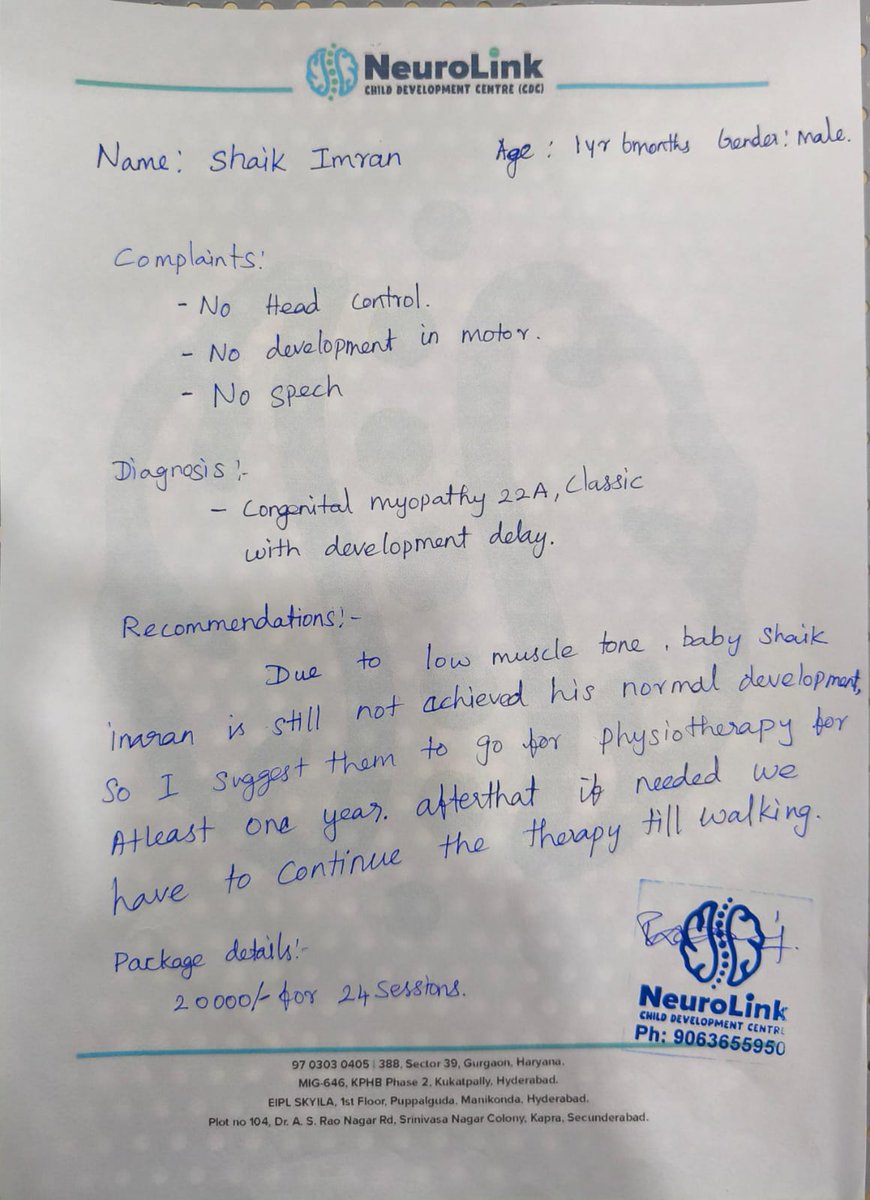 NeuroLink
CHILD DEVELOPMENT CENTRE (CDC)
Name: Shaik Imran Age : 1yr 6months Gender: Male.
Complaints:
- No Head control.
- No development in motor.
- No spech
Diagnosis:-
- Congenital myopathy 22A, Classic
with development delay.
Recommendations:-
Due to low muscle tone, baby Shaik
imaran is still not achieved his normal development,
So I suggest them to go for physiotherapy for
Atleast one year. afterthat if needed we
have to continue the therapy till walking.
Package details:-
20000/- for 24 Sessions.
NeuroLink
CHILD DEVELOPMENT CENTRE
Ph: 9063655950
97 0303 0405 | 388, Sector 39, Gurgaon, Haryana.
MIG-646, KPHB Phase 2, Kukatpally, Hyderabad.
EIPL SKYILA, 1st Floor, Puppalguda, Manikonda, Hyderabad.
Plot no 104, Dr. A. S. Rao Nagar Rd, Srinivasa Nagar Colony, Kapra, Secunderabad.